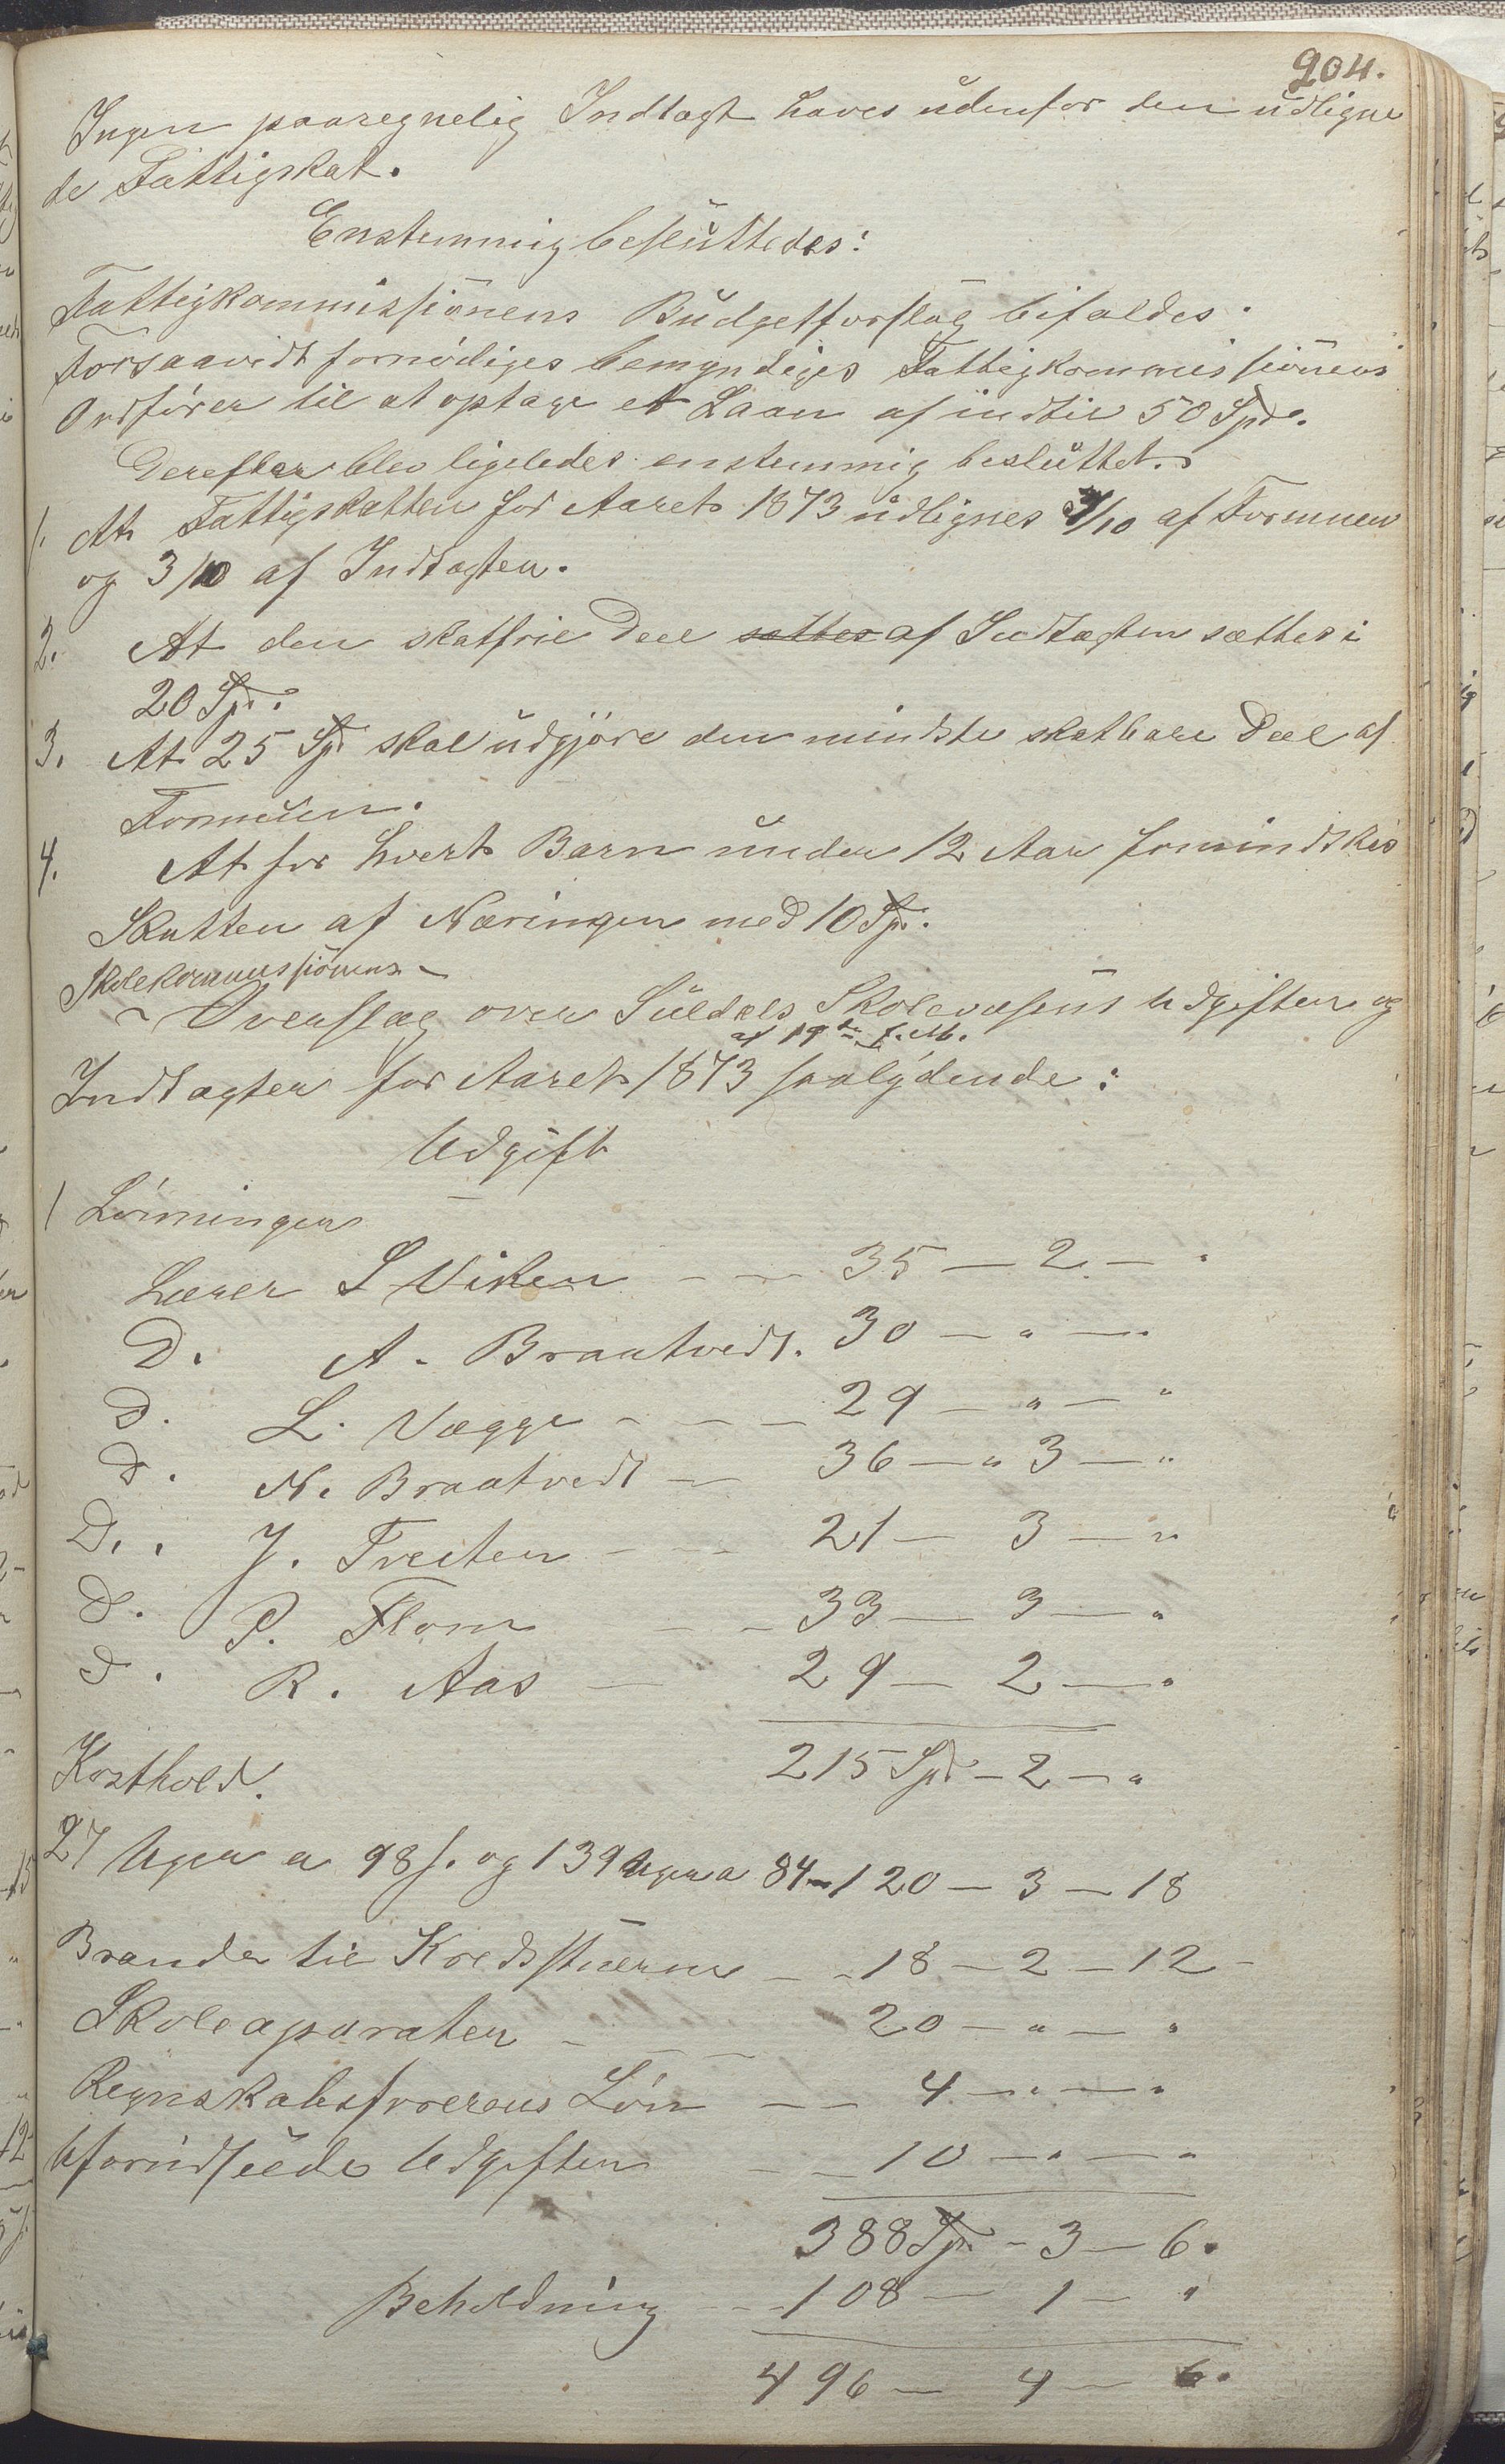 204.
Ingen paaregnelig Indtægt haves udenfor den udligne
de Fattigskat.
Enstemmig besluttedes:
Fattigkommissionens Budgetforslag bifaldes.
Forsaavidt fornødiges bemyndiges Fattigkommissionens
Ordfører til at optage et Laan af indtil 50 Spd.
Derefter blev ligeledes enstemmig besluttet.
1. At Fattigskatten for Aaret 1873 udlignes /10 af Formuen
og 3/10 af Indtægten.
2. At den skatfrie Deel sættes af Indtægten sættes i
20 Spd.
3. At 25 Spd skal udgjøre den mindste skatbare Deel af
Formuen.
4. At for hvert Barn under 12 Aar formindskes
Skatten af Næringen med 10 Spd.
Skolekommissionens
Overslag over Suldals Skolevæsens Udgifter og
af 19de f. M.
Indtægter for Aaret 1873 saalydende:
Udgift
1 Lønninger
Lærer S Viken - - 35 - 2 - "
D. A. Braatvedt. 30 - " - "
D. L. Vægge - - - 29 - " - "
D. N. Braatvedt - 36 - " 3 - "
D. J. Tveiten - - 21 - 3 - "
D. P. Flom - - 33 - 3 - "
D. R. Aas - 29 - 2 - "
215 Spd - 2 - "
Kosthold.
27 Uger a 98 s. og 139 Uger a 84 - 120 - 3 - 18
Brænde til Kredsstuerne - - 18 - 2 - 12 -
Skoleaparater - - - 20 - " - "
Regnskabsførerens Løn - - 4 - " - "
Uforudseede Udgifter - - 10 - " - "
388 Spd. - 3 - 6.
Beholdning - - 108 - 1 - "
496 - 4 - 6.